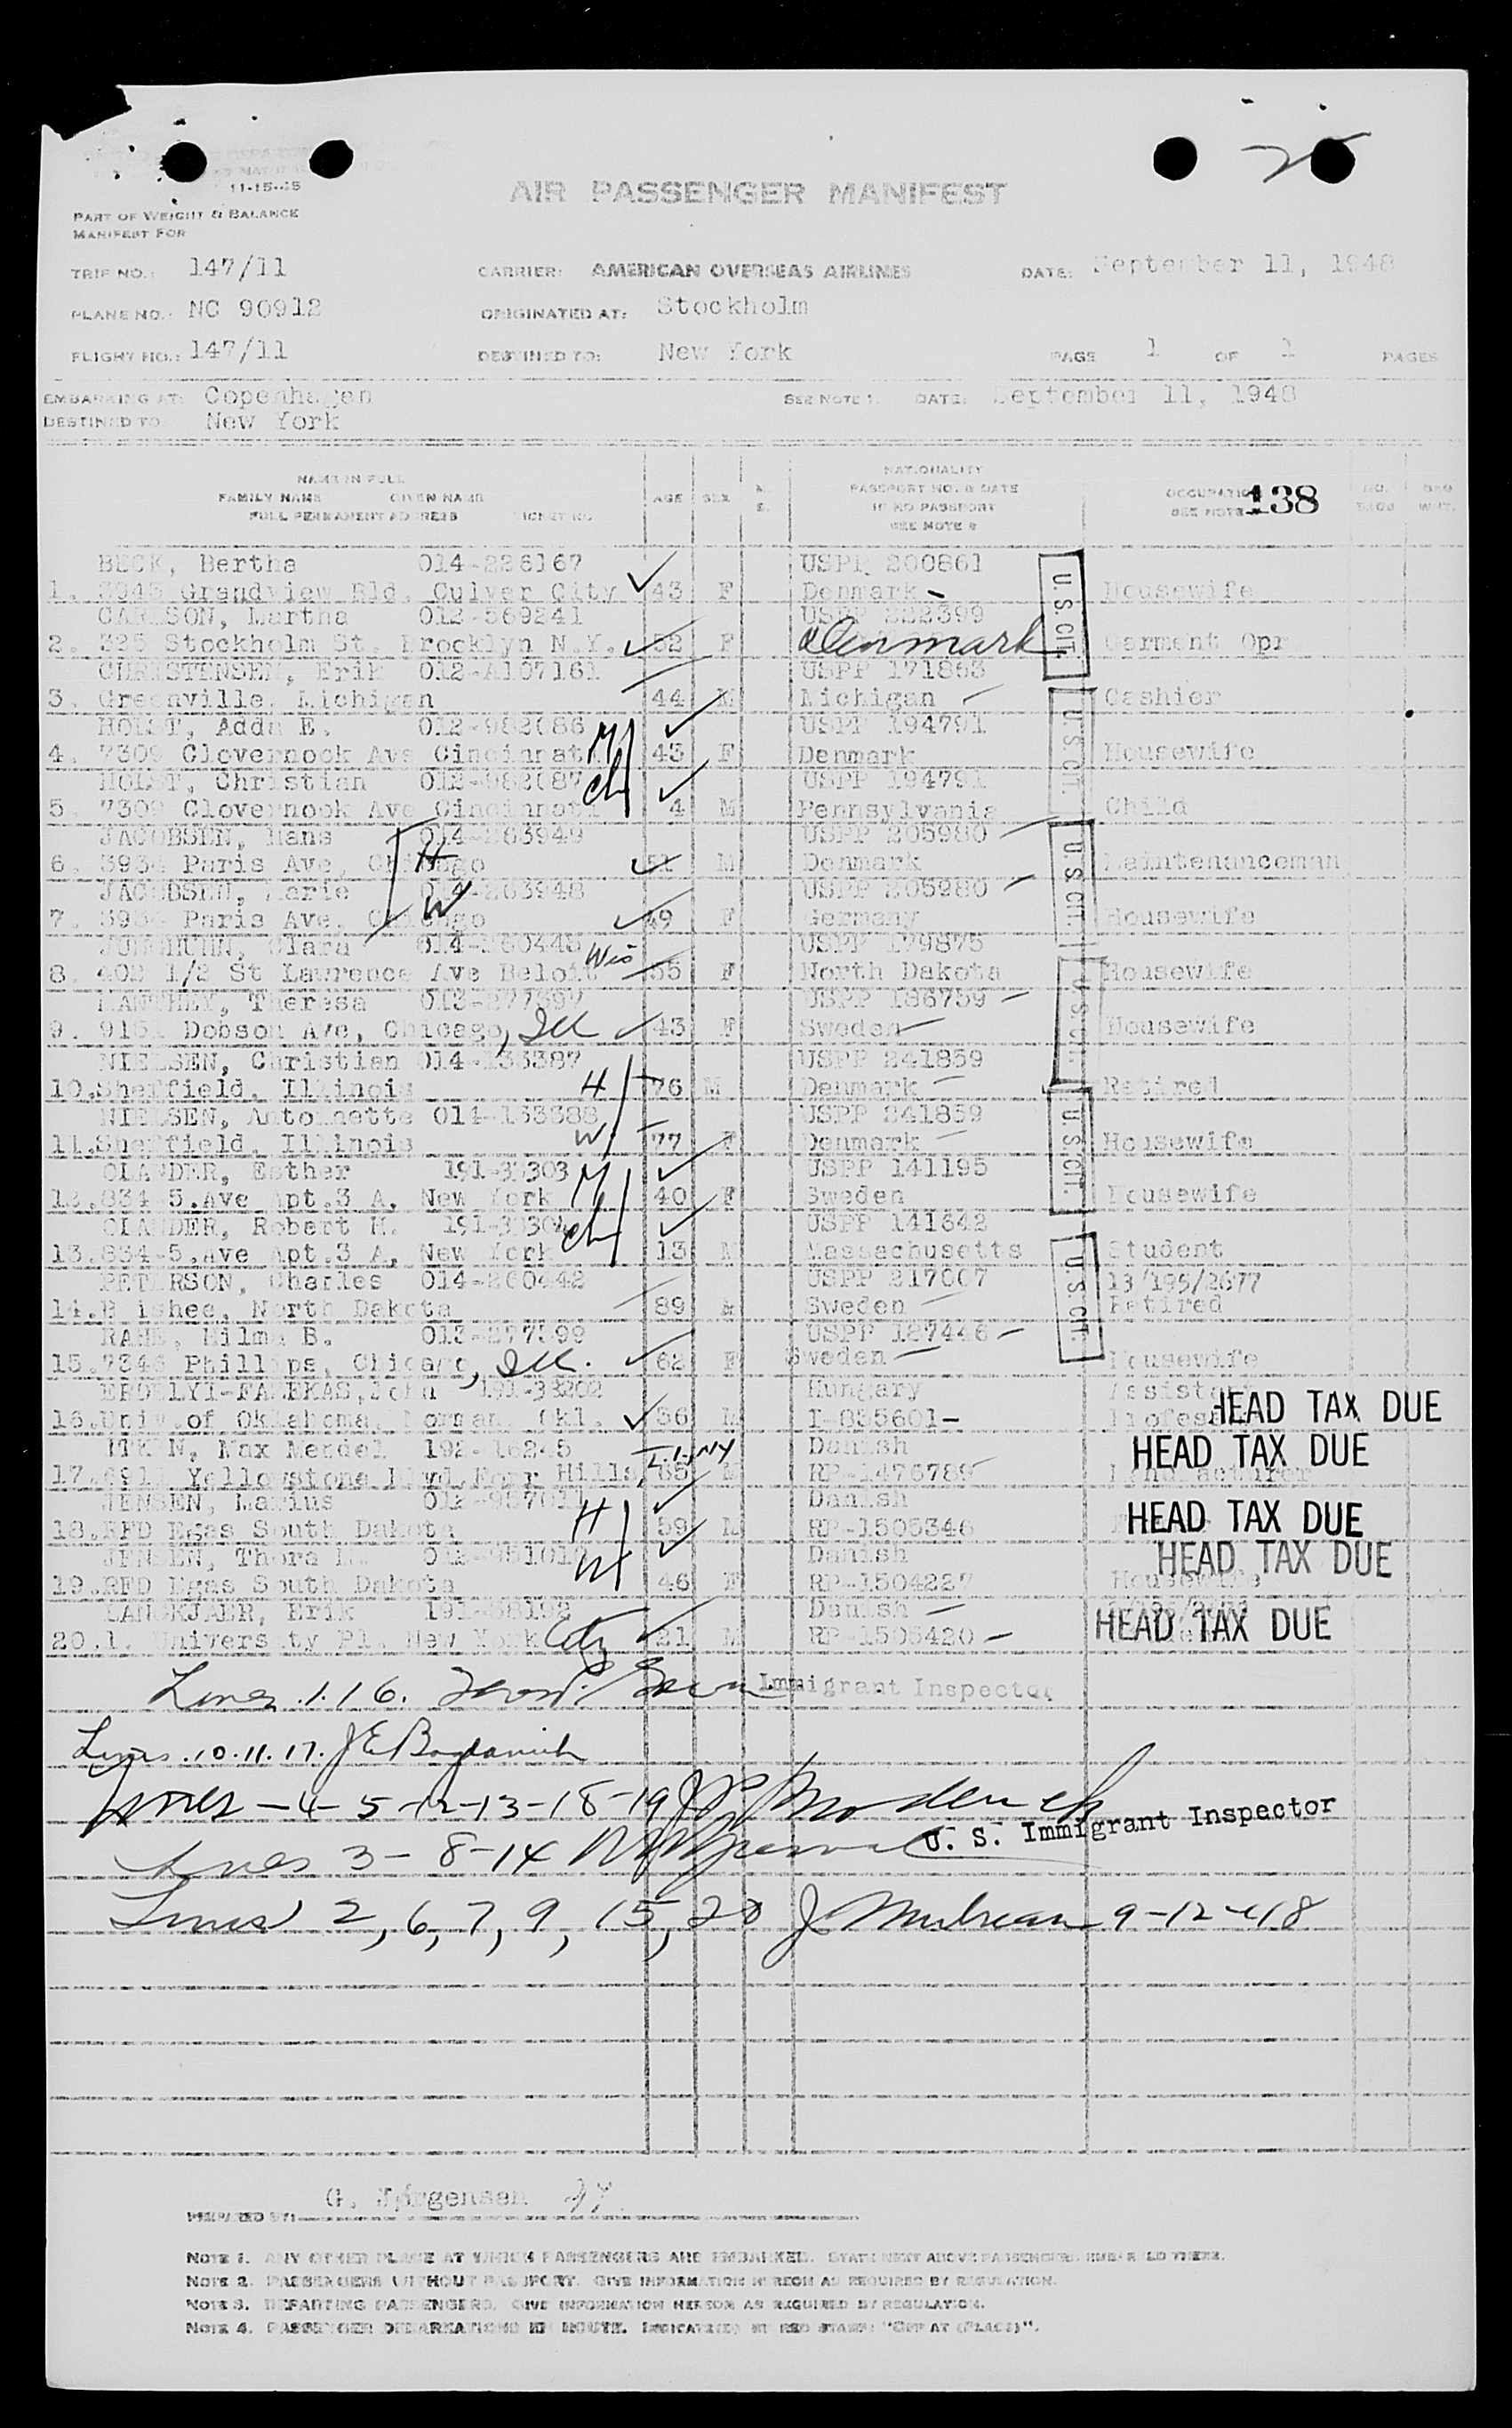 25
11-15-45
AIR PASSENGER MANIFEST
PART OF WEIGHT & BALANCE
MANIFEST FOR
TRIP NO.: 147/11 CARRIER: AMERICAN OVERSEAS AIRLINES DATE: September 11, 1948
PLANE NO.: NC 90912 ORIGINATED AT: Stockholm
FLIGHT NO.: 147/11 DESTINED TO: New York PAGE 1 OF 1 PAGES
EMBARKING AT: Copenhagen SEE NOTE 1. DATE: September 11, 1948
DESTINED TO New York
NAME IN FULL NATIONALITY
FAMILY NAME GIVEN NAME AGE SEX PASSPORT NO. & DATE OCCUPATION 138
FULL PERMANENT ADDRESS TICKET NO. IF NO PASSPORT SEE NOTE
SEE NOTE 2
BECK, Bertha 014-226167 USPP 200861
1. Grandview Bld. Culver City 43 F Denmark Housewife
CARLSON, Martha 012-569241 USPP 222399
2. 325 Stockholm St. Brooklyn N.Y. 52 F Denmark Garment Opr
CHRISTENSEN, Erik 012-A107161 USPP 171863
3. Greenville, Michigan 44 M Michigan Cashier
HOLST, Adda E. 012-982086 M USPP 194791
4. 7309 Clovernook Ave Cincinnati 43 F Denmark Housewife
HOLST, Christian 012-982087 ch USPP 194791
5. 7309 Clovernook Ave Cincinnati 4 M Pennsylvania Child
JACOBSEN, Hans 014-263949 USPP 205980
6. Paris Ave, Chicago H 51 M Denmark Maintenanceman
JACOBSEN, Marie 014-263948 USPP 205980
7. Paris Ave. Chicago W 49 F Germany Housewife
Clara 014-260445 USPP 179875
8. 402 1/2 St Lawrence Ave Beloit Wis 55 F North Dakota Housewife
Theresa USPP 186759
9. Dobson Ave, Chicago, Ill 43 F Sweden Housewife
NIELSEN, Christian 014-133387 USPP 241859
10. Sheffield, Illinois H 76 M Denmark Retired
NIELSEN, Antoinette 014-133388 USPP 241859
11. Sheffield, Illinois W 77 F Denmark Housewife
OLANDER, Esther M USPP 141195
12. 834 5.Ave Apt.3 A, New York 40 F Sweden Housewife
OLANDER, Robert H. ch USPP 141642
13. 834-5.Ave Apt.3 A, New York 13 M Massachusetts Student
PETERSON, Charles 014-260442 USPP 217007 13/195/2677
14. North Dakota 89 M Sweden Retired
Hilma B. USPP 127446
15. 7346 Phillips, Chicago, Ill. 62 F Sweden Housewife
U.S. CIT.
U.S. CIT.
U.S. CIT.
U.S. CIT.
U.S. CIT.
U.S. CIT.
ERDELYI-FAZEKAS, John Hungary Assistant
16. Univ. of Oklahoma, Norman, Okl. 36 M I-835601 HEAD TAX DUE
Max Mendel Danish HEAD TAX DUE
17. Yellowstone Blvd, Forr Hills, L.I., NY 65 M RP-1476789
JENSEN, Marius H Danish
18. RFD Egas South Dakota 59 M RP-1505346 HEAD TAX DUE
JENSEN, Thora W Danish HEAD TAX DUE
19. RFD Egas South Dakota 46 F RP-1504227 Housewife
LANGKJAER, Erik Danish
20. 1. University Pl. New York City 21 M RP-1505420 HEAD TAX DUE
Lines 1. 16. Immigrant Inspector
Lines 10. 11. 17. J E Bogdanich
Lines -4- 5 -12-13-18-19
U. S. Immigrant Inspector
Lines 3- 8-14
Lines 2, 6, 7, 9, 15, 20 9-12-48
PREPARED BY: G. Jørgensen
NOTE 1. ANY OTHER PLACE AT WHICH PASSENGERS ARE EMBARKED. STATEMENT ABOVE PASSENGERS
NOTE 2. PASSENGERS WITHOUT PASSPORT. GIVE INFORMATION HEREON AS REQUIRED BY REGULATION.
NOTE 3. DEPARTING PASSENGERS. GIVE INFORMATION HEREON AS REQUIRED BY REGULATION.
NOTE 4. PASSENGER DEBARKATIONS EN ROUTE. INDICATED BY RED STAMP: "OFF AT (PLACE)".